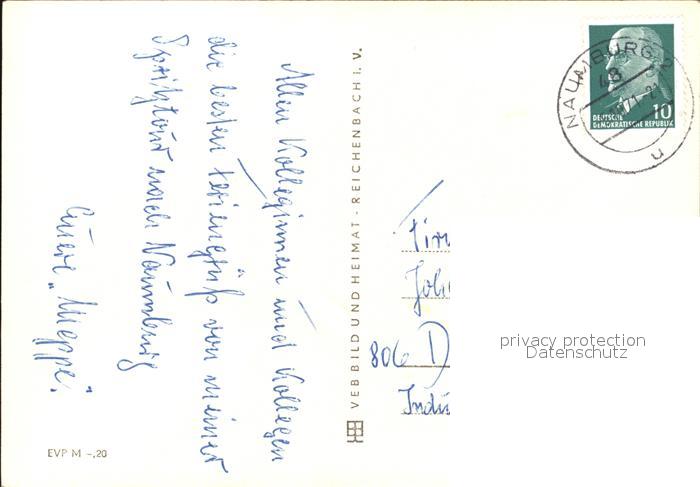 Allen Kolleginnen und Kollegen
die besten Feriengrüß von meiner
Spritztour nach Naumburg
Eure „Mieppe".
EVP M -,20
VEB BILD UND HEIMAT - REICHENBACH I. V.
NAUMBURG 2
u
10
DEUTSCHE
DEMOKRATISCHE REPUBLIK
Fir
Joh
806 D
Indu
privacy protection
Datenschutz